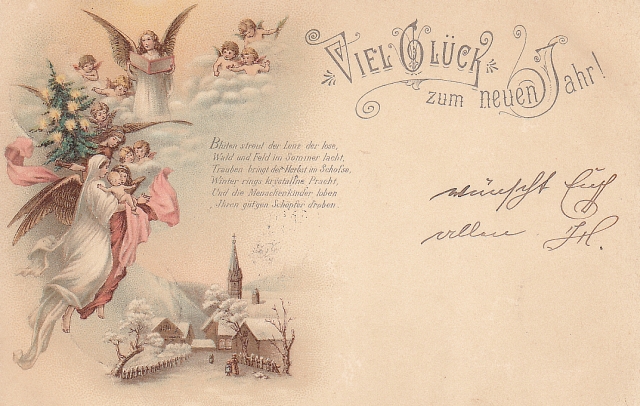 Viel Glück
zum neuen Jahr!
Blüten streut der Lenz der lose,
Wald und Feld im Sommer lacht,
Trauben bringt der Herbst im Schosse,
Winter rings krystallne Pracht,
Und die Menschenkinder loben
Ihren gütgen Schöpfer droben.
wünscht Euch
allen